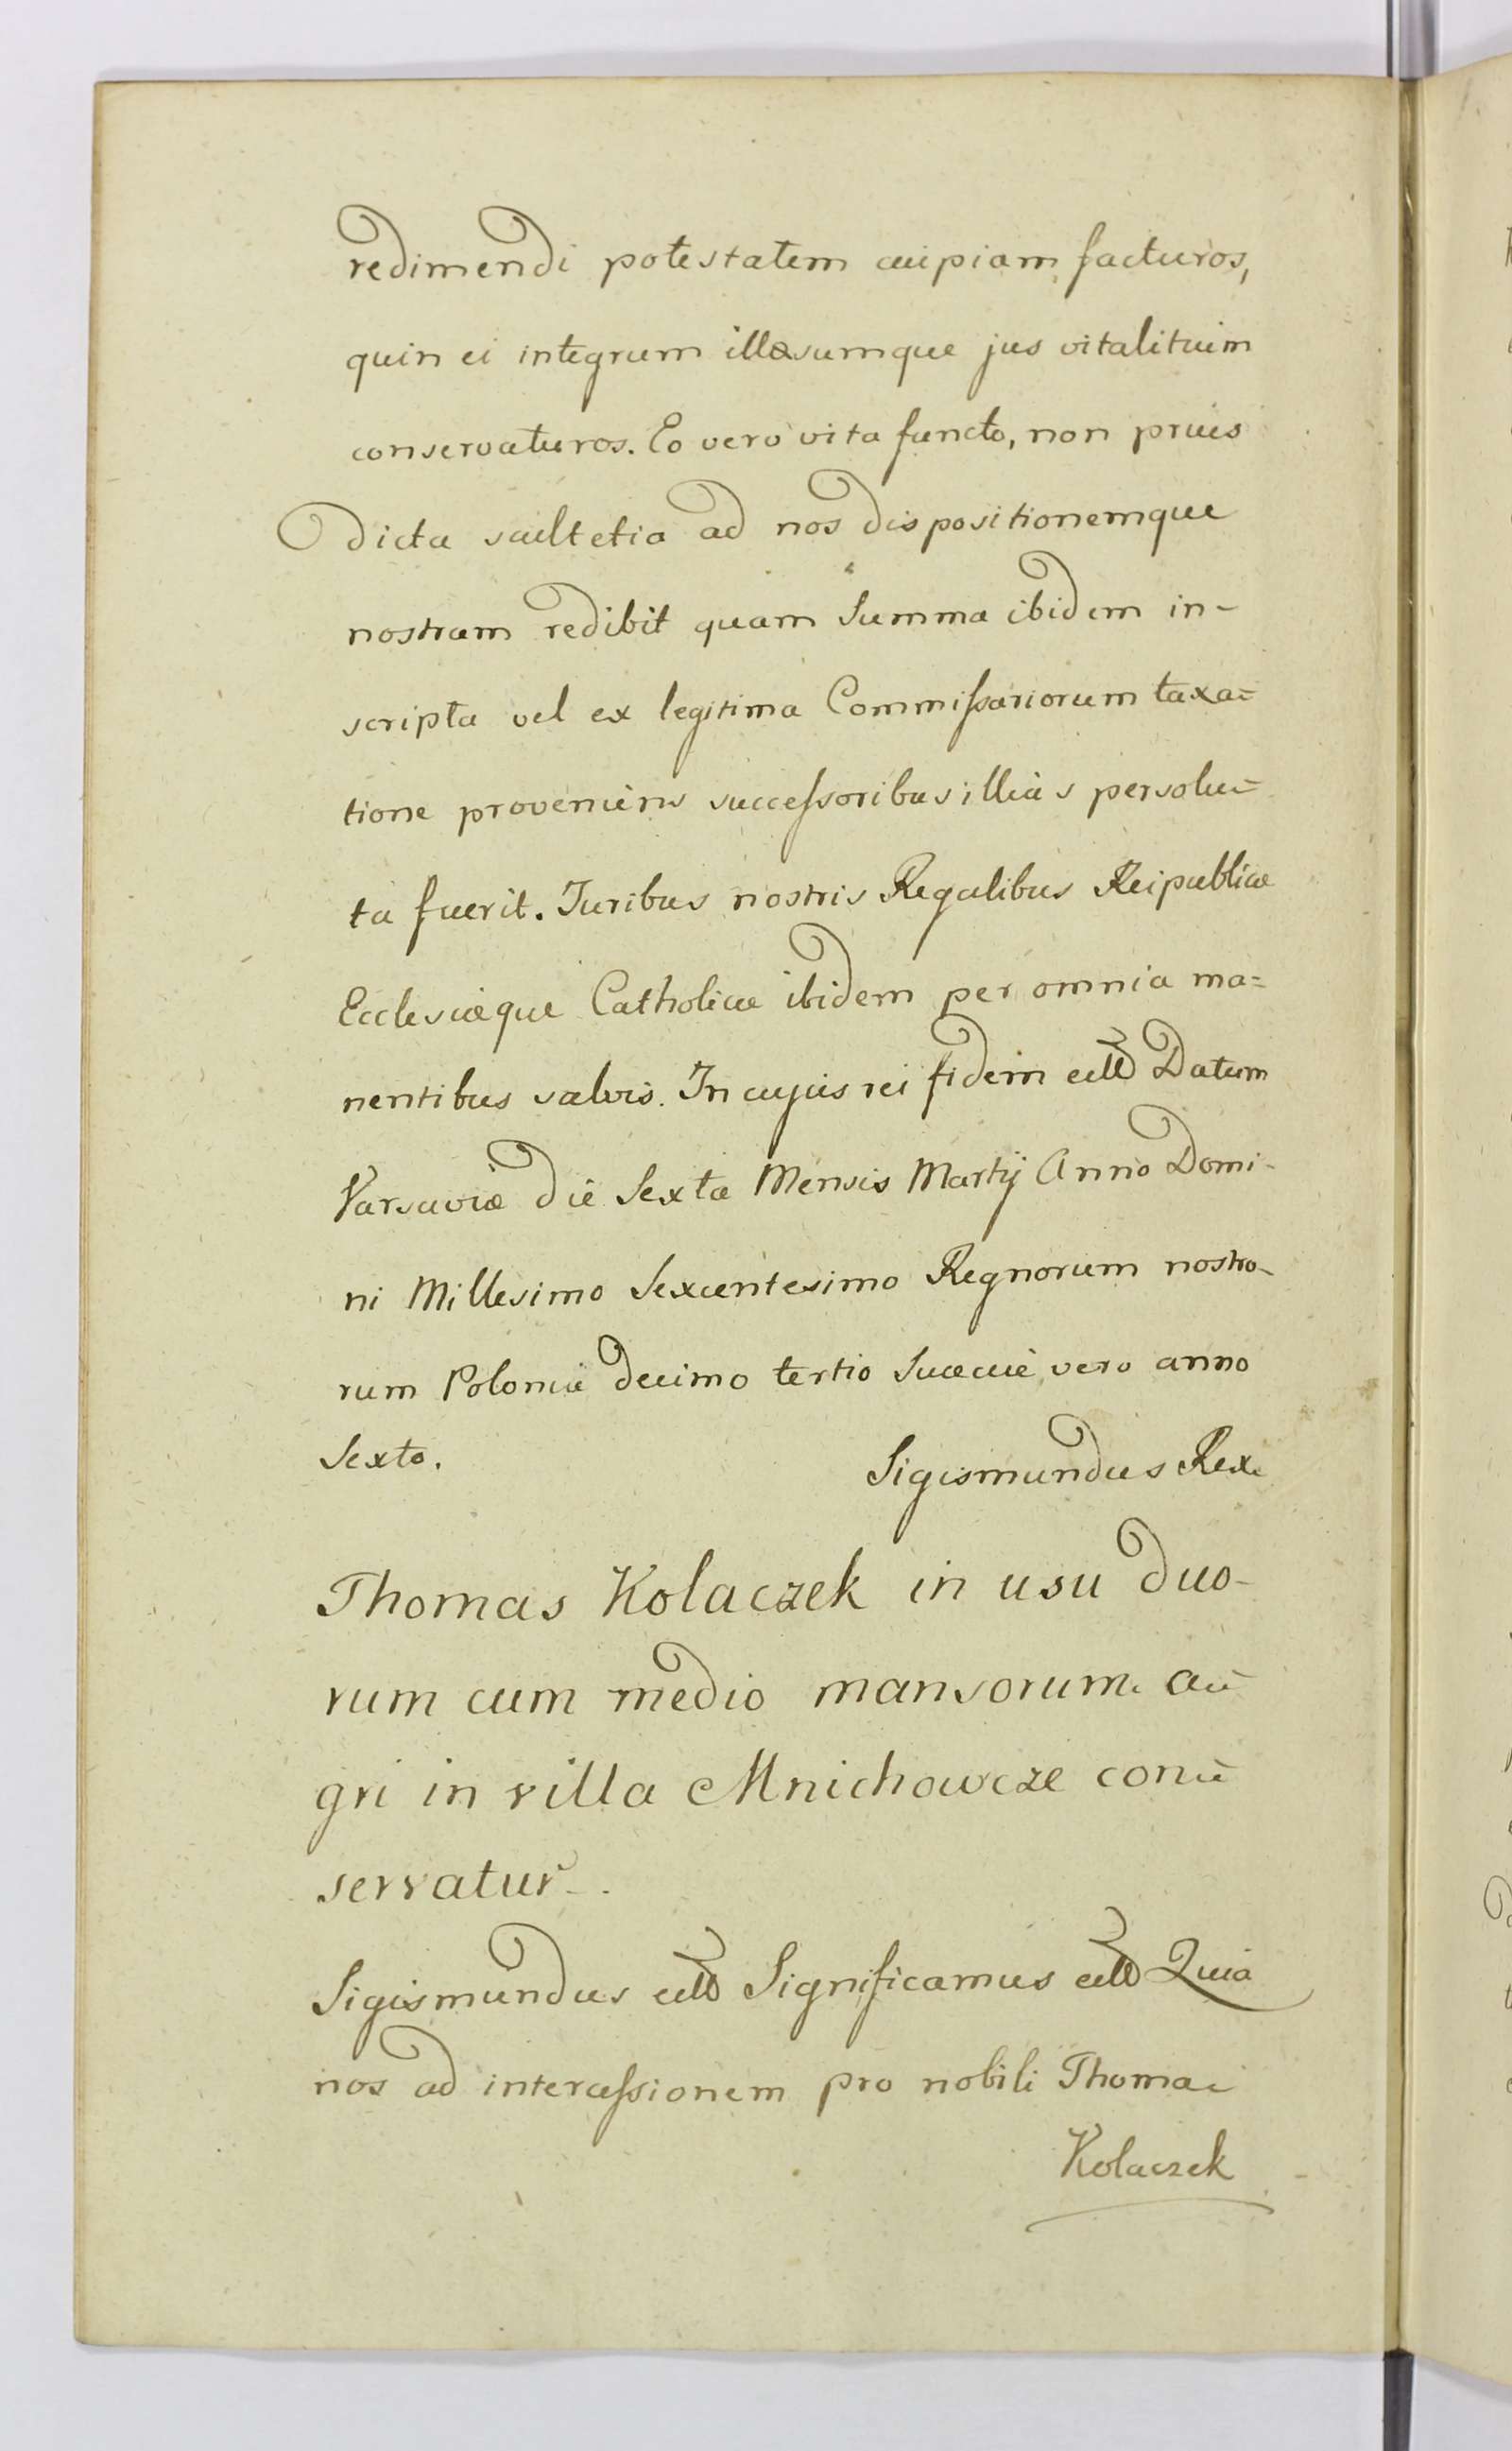 redimendi potestatem cuipiam facturos,
quin ei integrum illæsumque jus vitalituim
conservaturos. Eo vero vita functo, non prius
dicta scultetia ad nos dispositionemque
nostram redibit quam Summa ibidem in-
scripta vel ex legitima Commissariorum taxa=
tione proveniens successoribus illius persolu=
ta fuerit. Juribus nostris Regalibus Reipublicæ
Ecclesiæque Catholicæ ibidem per omnia ma=
nentibus salvis. In cujus rei fidem Datum
Varsaviæ die Sexta Mensis Martij Anno Domi-
ni Millesimo Sexcentesimo Regnorum nostro-
rum Poloniæ decimo tertio Sueciæ vero anno
Sexto.
Sigismundus Rex.
Thomas Kolaczek in usu duo-
rum cum medio mansorum a=
gri in villa Mnichowcze con=
servatur.
Sigismundus Significamus Quia
nos ad intercessionem pro nobili Thoma
Kolaczek